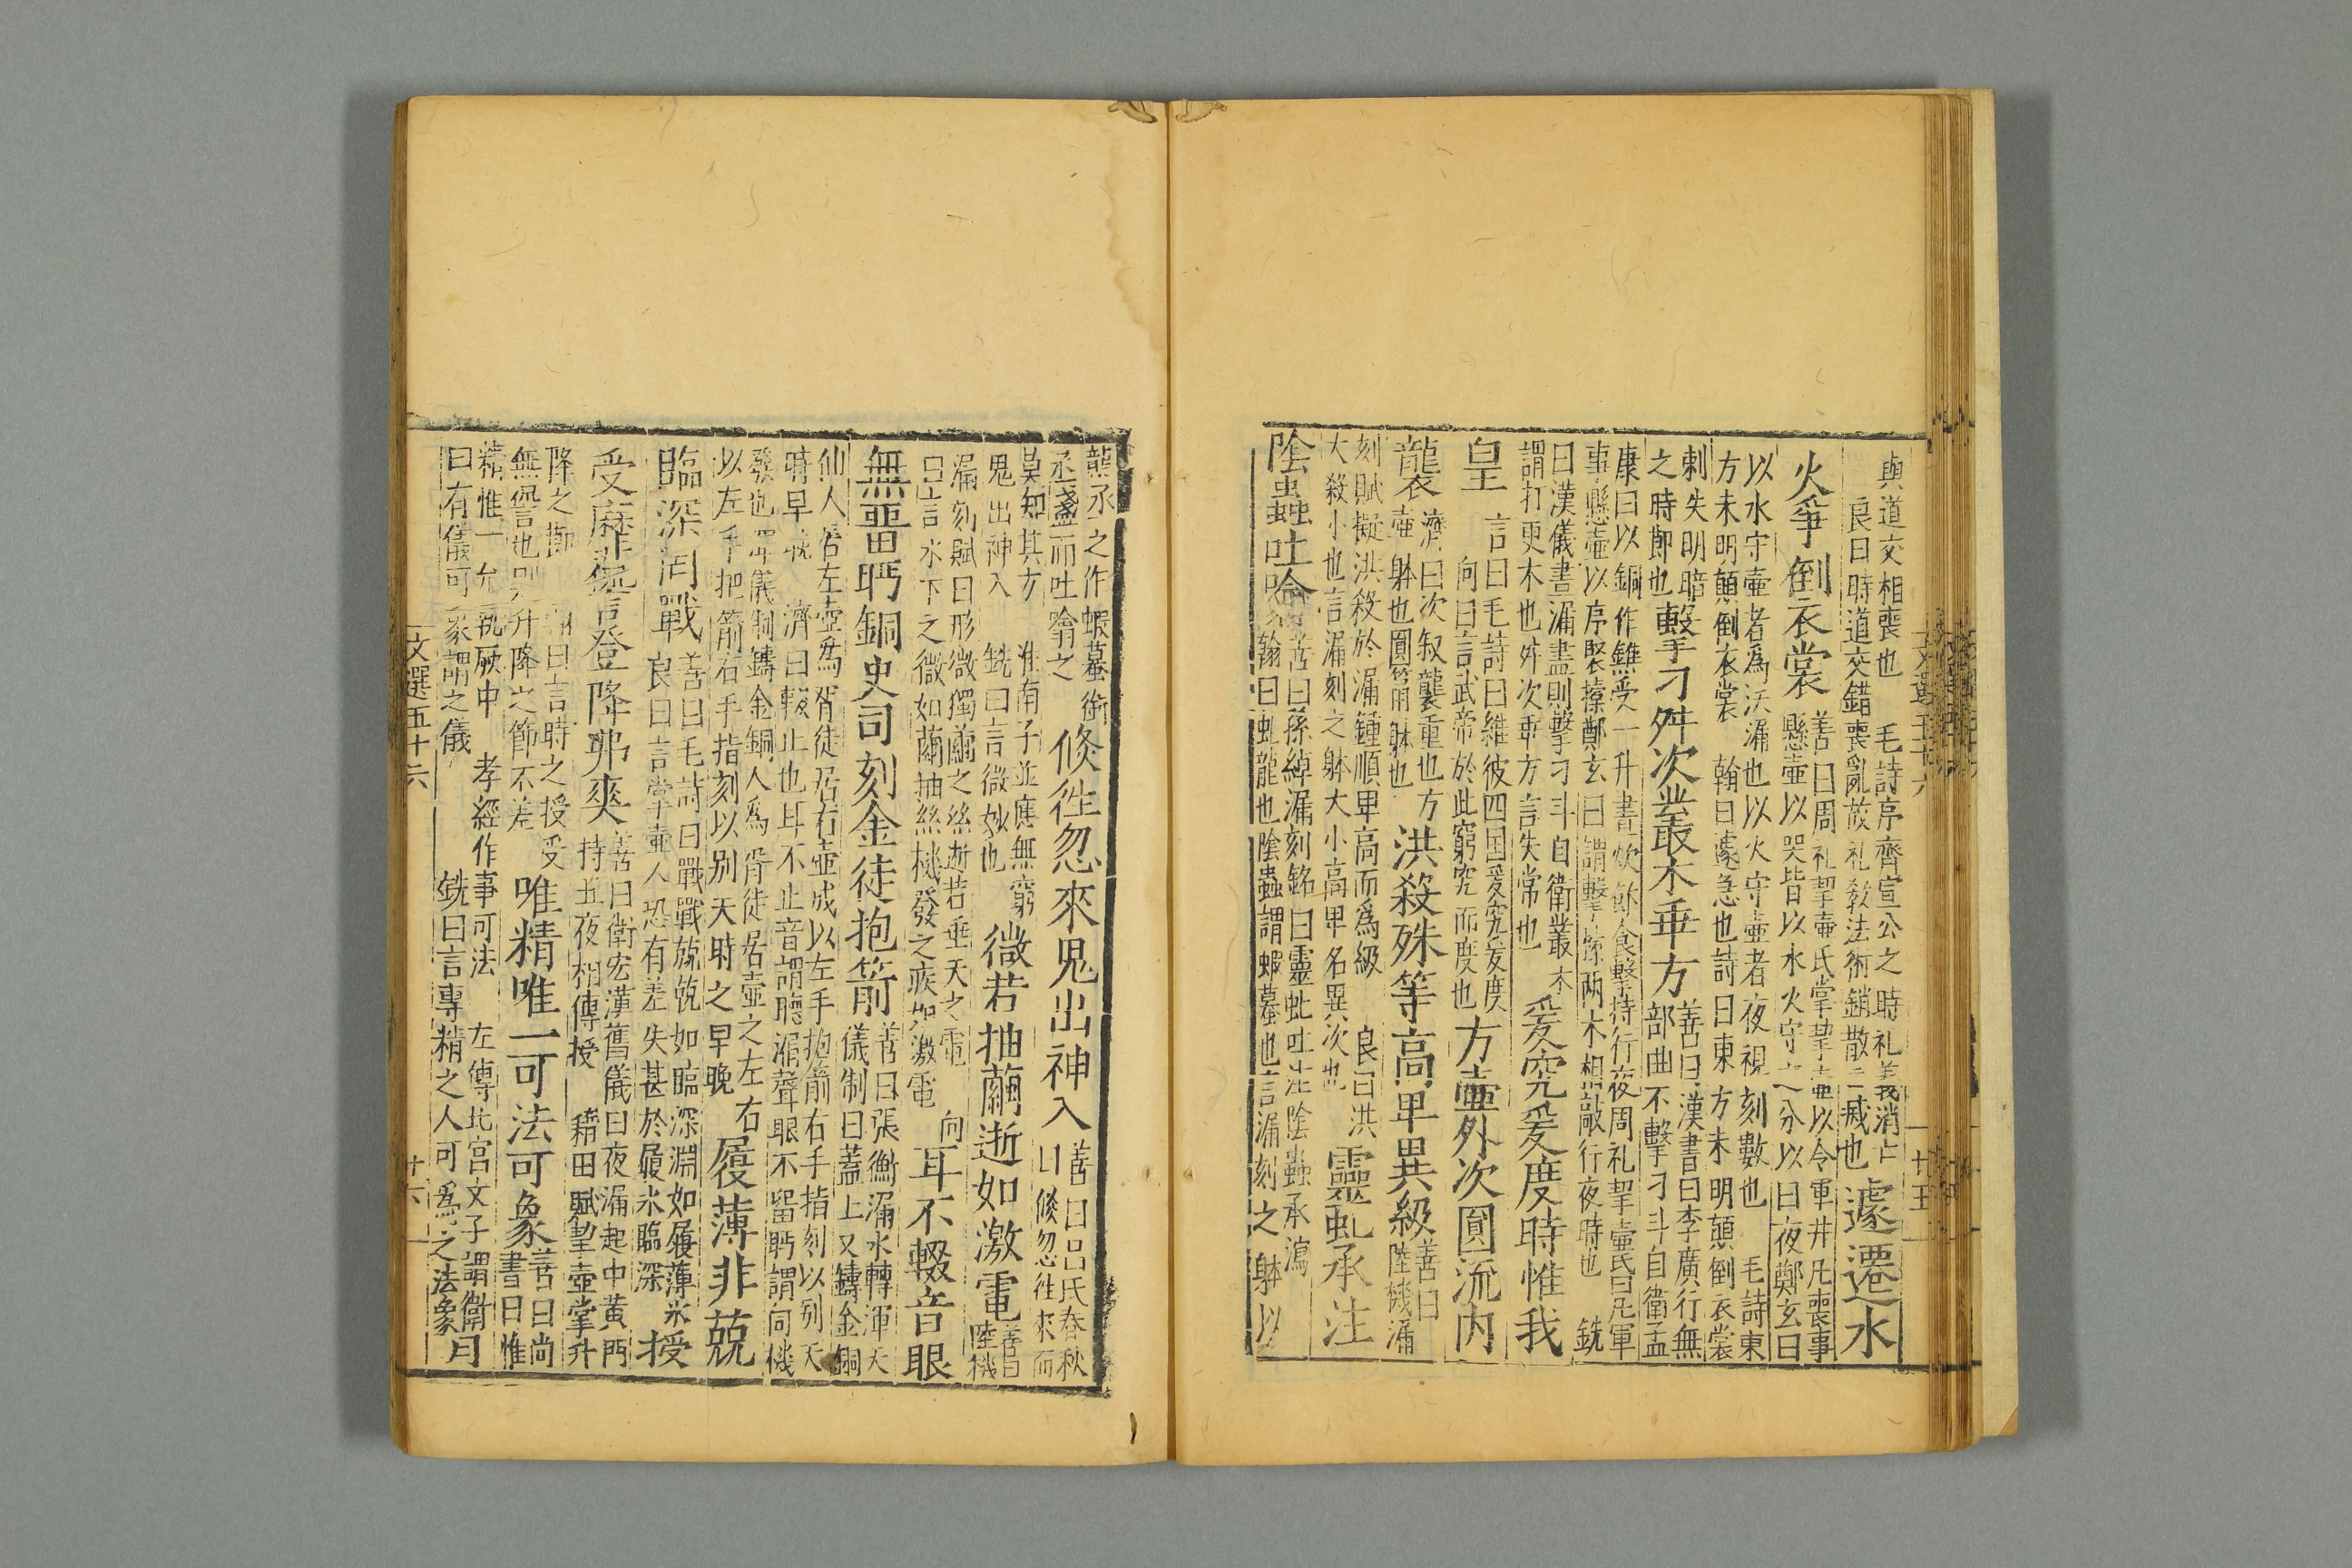 與道交相喪也　毛詩序齊宣公之時礼義消亡
良曰時道交錯喪亂故礼敎法術銷散二㓕也
遽遷水
火爭倒衣裳
善曰周礼挈壺氏掌挈壺以令軍井凡喪事
懸壺以哭皆以水火守之分以日夜鄭玄曰
以水守壺者爲沃漏也以火守壺者夜視刻數也　毛詩東
方未明顚倒衣裳　翰曰遽急也詩曰東方未明顚倒衣裳
刺失明暗
之時節也
擊刁舛次叢木乖方
善曰漢書曰李廣行無
部曲不擊刁斗自衛孟
康曰以銅作鐎受一升晝炊飮食擊持行夜周礼挈壺氏曰凡軍
事懸壺以序聚㯿鄭玄曰謂擊㯿兩木相敲行夜時也　銑
曰漢儀晝漏盡則擊刁斗自衛叢木
謂打更木也舛次乖方言失常也
爰究爰度時惟我
皇
言曰毛詩曰維彼四国爰究爰度
向曰言武帝於此窮究而度也
方壷外次圓流內
襲
濟曰次叙襲重也方
壷躰也圓筩躰也
洪殺殊等高卑異級
善曰
陸機漏
刻賦擬洪殺於漏鍾順卑高而爲級　良曰洪
大殺小也言漏刻之躰大小高卑名異次也
靈虬承注
陰蟲吐噏
善曰孫綽漏刻銘曰靈虬吐注陰蟲承瀉
翰曰虬龍也陰蟲謂蝦蟇也言漏刻之躰以
龍承之作蝦蟇銜
丞盞而吐噏之
倐徃忽來鬼出神入
善曰呂氏春秋
曰倐忽徃來而
莫知其方　淮南子並應無窮
鬼出神入　銑曰言微妙也
微若抽繭逝如激電
善曰
陸機
漏刻賦曰形微獨繭之絲逝若垂天之電　向
曰言水下之微如繭抽絲機發之疾如激電
耳不輟音眼
無畱眄銅史司刻金徒抱箭
善曰張衡漏水轉渾天
儀制曰蓋上又鑄金銅
仙人居左壺爲胥徒居右壺成以左手抱箭右手指刻以别天
時早晩　濟曰輟止也耳不止音謂聽漏聲眼不留眄謂伺機
發也渾儀制鑄金銅人爲胥徒居壺之左右
以左手把箭右手指刻以别天時之早晩
履薄非兢
臨深罔戰
善曰毛詩曰戰戰兢兢如臨深淵如履薄氷
良曰言掌壷人恐有差失甚於履氷臨深
授
受靡諐登降弗爽
善曰衛宏漢舊儀曰夜漏起中黃門
持五夜相傳授　籍田賦挈壺掌升
降之節　翰曰言時之授受
無諐也則升降之節不差
唯精唯一可法可象
善曰尚
書曰惟
精惟一允執厥中　孝經作事可法　左傳北宫文子謂衛
曰有儀可象謂之儀　銑曰言專精之人可爲之法象
月
文選五十六
十六